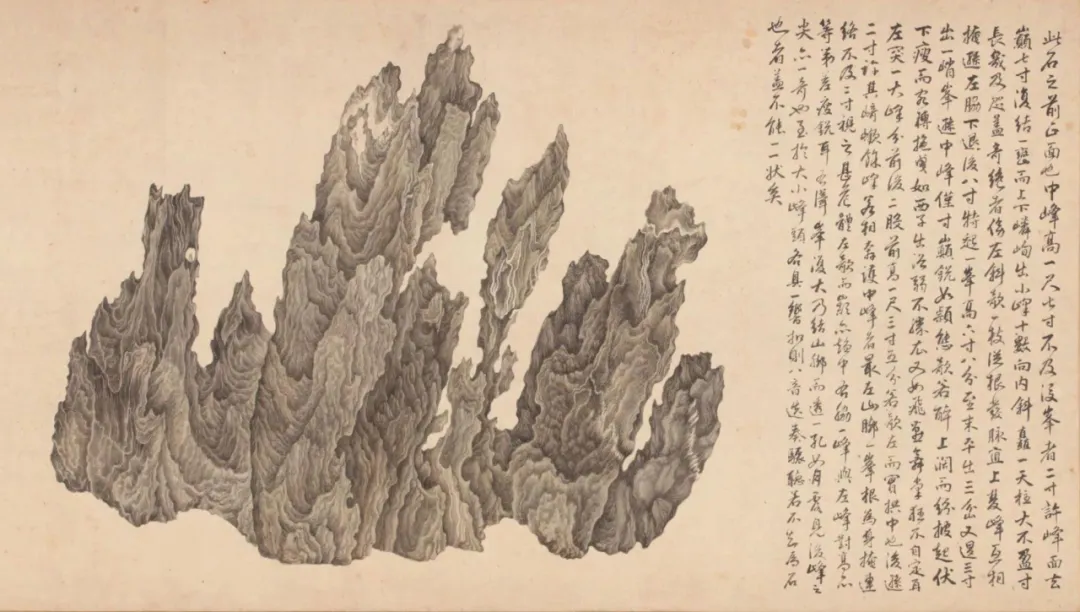 此石之前正面也中峰高一尺七寸不及後峯者二寸許峰面去
巔七寸復結一巒而上下嶙峋出小峰十數向內斜矗一天柱大不盈寸
長幾及咫蓋奇絕者偏左斜欹一枝從根發脉直上與峰互相
掩避左脇下退後八寸特起一峯高六寸八分末平出三分又過三寸
出一峭峯避中峰僅寸巔銳如穎態欹若醉上闊而紛披起伏
下瘦而宛轉拖曳如西子出浴弱不勝衣又如飛燕舞掌不自定耳
左突一大峰分前後二股前高一尺三寸五分若欹左而實拱中也後避
二寸許其崎嶔餘峰若相奔護中峰者最左山腳一峯根為身掩連
絡不及二寸視之甚危體左欹而巔亦中右脇一峰與左峰對高亦
等第差瘦銳耳右峯後大乃結山腳而透一孔如月見後峰之
尖亦一奇也至於大小峰頭各具一響扣則八音迭奏驟聽若不為石
也者蓋不能一二狀矣